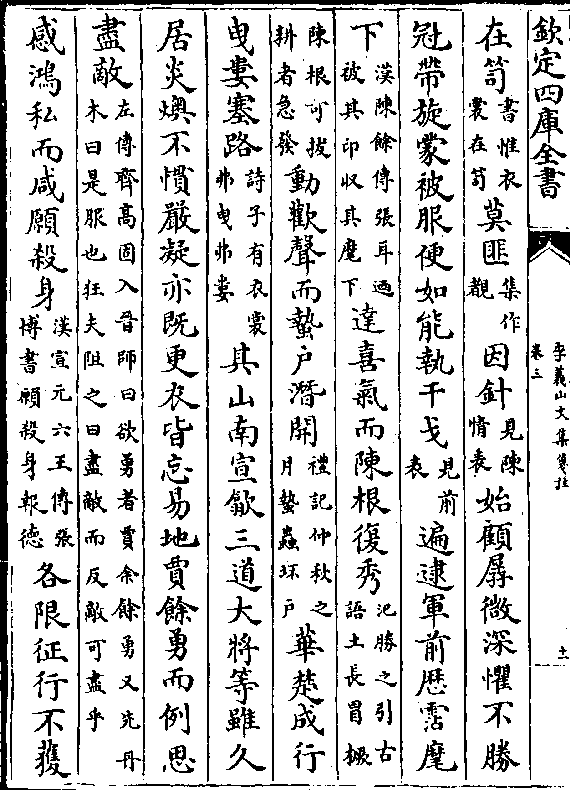 欽定四庫全書
李義山文集箋註
卷三
十一
在笥書惟衣裳在笥莫匪集作覩因針見陳情表始顧孱微深懼不勝
冠帶旋蒙被服便如能執干戈見前表遍逮軍前歴霑麾
下漢陳餘傳張耳迺被其印收其麾下達喜氣而陳根復秀氾勝之引古語土長冒橛
陳根可拔耕者急發動歡聲而蟄户潛開禮記仲秋之月蟄蟲坏户華楚成行
曵婁塞路詩子有衣裳弗曵弗婁其山南宣歙三道大將等雖久
居炎燠不慣嚴凝亦既更衣皆忘易地賈餘勇而例思
盡敵左傳齊高固入晉師曰欲勇者賈余餘勇又先丹木曰是服也狂夫阻之曰盡敵而反敵可盡乎
感鴻私而咸願殺身漢宣元六王傳張博書願殺身報德各限征行不獲